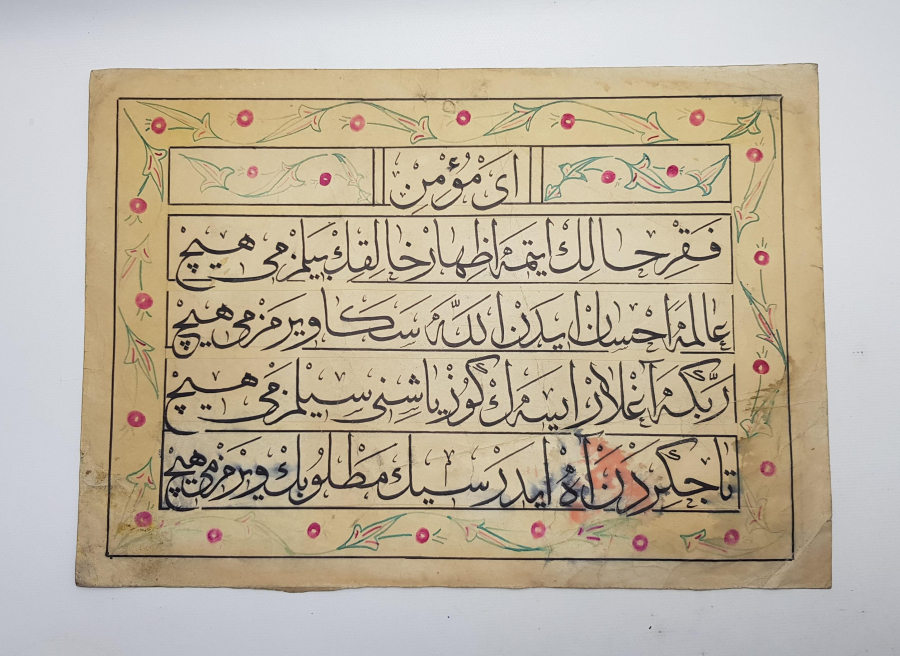 اى مؤمن
فقر حالك ايتمه اظهار خالقك بيلمزمى هيچ
عالمه احسان ايدن الله سكا ويرمزمى هيچ
ربكه آغلار ايسه ك گوز ياشنى سيلمزمى هيچ
تا جگردن آه ايدرسيك مطلوبك ويرمزمى هيچ